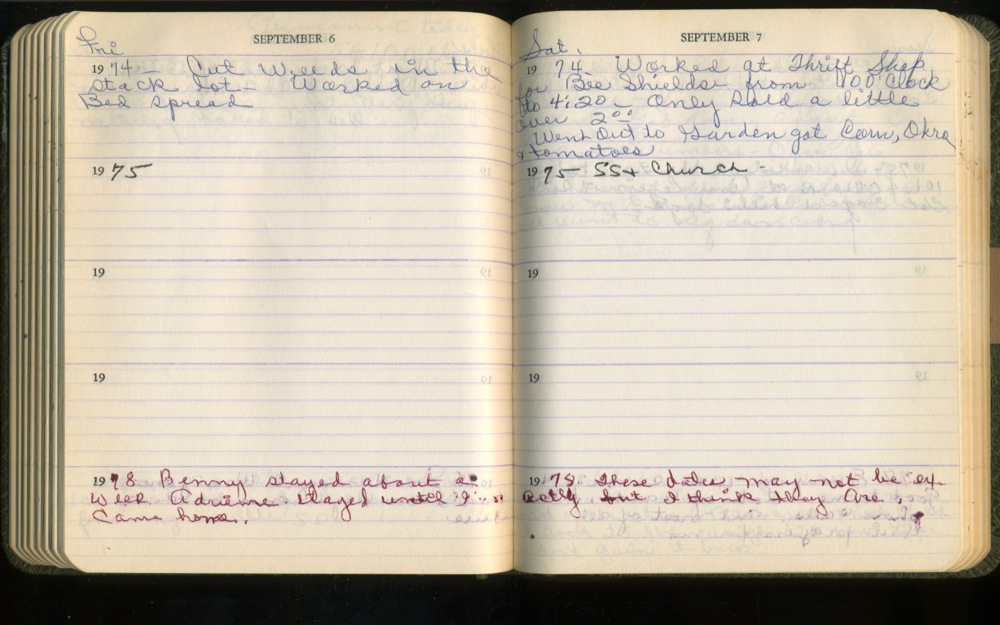 SEPTEMBER 6
Fri
1974 - Cut Weeds in the
stack lot - Worked on
Bed spread
1975
19
19
1978 Benny stayed about a
week Adriene stayed until I
came home.
SEPTEMBER 7
Sat.
1974 Worked at Thrift Shop
for Bee Shields from 1 O'Clock
to 4:20 - Only Sold a little
over 2 00
Went Out to Garden got Corn, Okra
& tomatoes
1975 - SS & Church -
19
19
1978 These dates may not be ex
actly but I think they are.